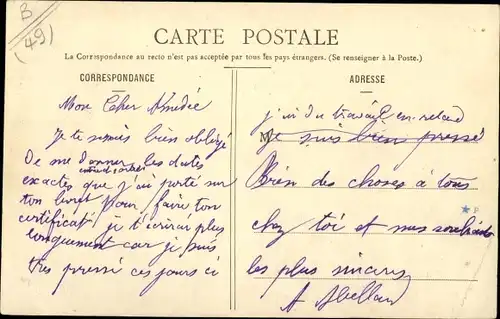 B
(49)
CARTE POSTALE
La Correspondance au recto n'est pas acceptée par tous les pays étrangers. (Se renseigner à la Poste.)
CORRESPONDANCE
Mon Cher Amédée
Je te serais bien obligé
De me donner les dates
exactes que j'ai porté sur
ton livret pour faire ton
certificat, je t'écrirai plus
longuement car je suis
très pressé ces jours ci
ADRESSE
j'ai du travail en retard
M
Je suis bien pressé
Bien des choses à tous
chez toi et mes souhaits
les plus sincères
A